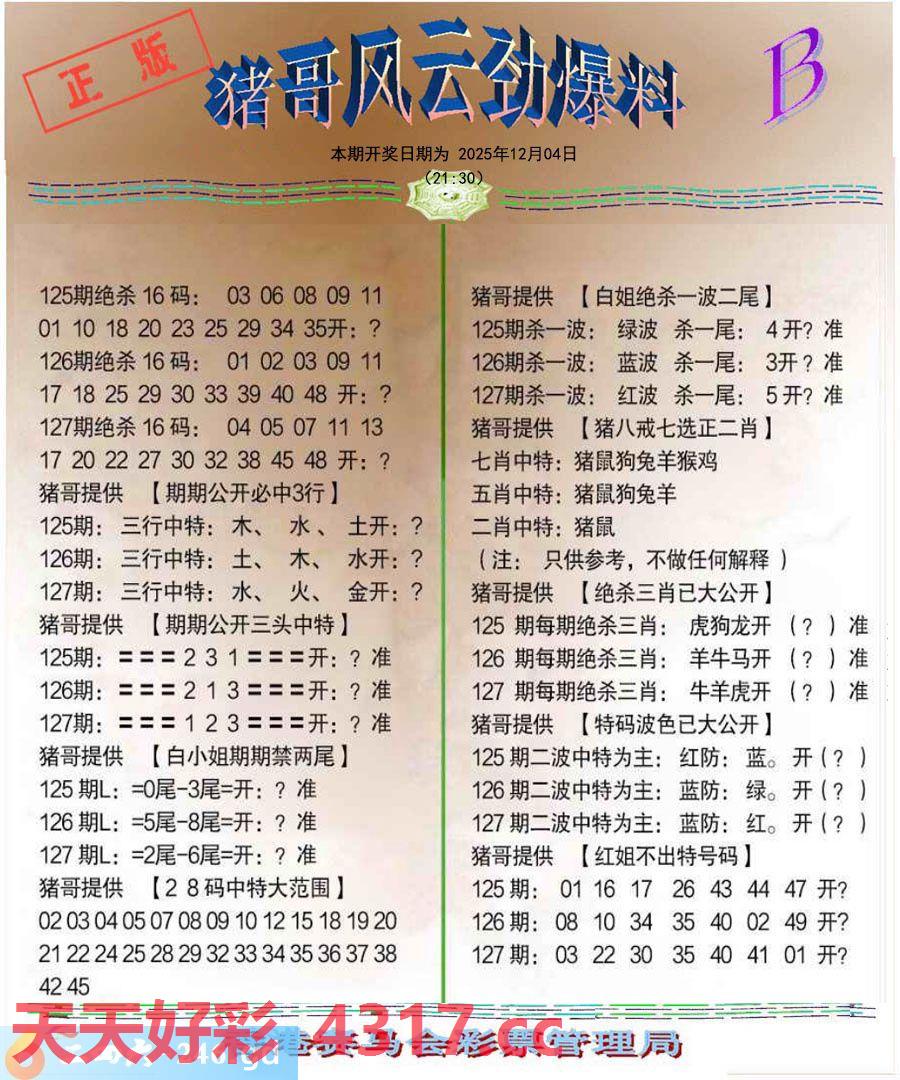 正版
猪哥风云劲爆料
B
本期开奖日期为 2025年12月04日
(21:30)
125期绝杀16码： 03 06 08 09 11
01 10 18 20 23 25 29 34 35开：?
126期绝杀16码： 01 02 03 09 11
17 18 25 29 30 33 39 40 48 开：?
127期绝杀16码： 04 05 07 11 13
17 20 22 27 30 32 38 45 48 开：?
猪哥提供 【期期公开必中3行】
125期： 三行中特： 木、 水、 土开：?
126期： 三行中特： 土、 木、 水开：?
127期： 三行中特： 水、 火、 金开：?
猪哥提供 【期期公开三头中特】
125期：===2 3 1===开：? 准
126期：===2 1 3===开：? 准
127期：===1 2 3===开：? 准
猪哥提供 【白小姐期期禁两尾】
125期L：=0尾-3尾=开：? 准
126期L：=5尾-8尾=开：? 准
127期L：=2尾-6尾=开：? 准
猪哥提供 【28码中特大范围】
02 03 04 05 07 08 09 10 12 15 18 19 20
21 22 24 25 28 29 32 33 34 35 36 37 38
42 45
猪哥提供 【白姐绝杀一波二尾】
125期杀一波： 绿波 杀一尾： 4开? 准
126期杀一波： 蓝波 杀一尾： 3开? 准
127期杀一波： 红波 杀一尾： 5开? 准
猪哥提供 【猪八戒七选正二肖】
七肖中特：猪鼠狗兔羊猴鸡
五肖中特：猪鼠狗兔羊
二肖中特：猪鼠
（注： 只供参考，不做任何解释）
猪哥提供 【绝杀三肖已大公开】
125 期每期绝杀三肖： 虎狗龙开 （?）准
126 期每期绝杀三肖： 羊牛马开 （?）准
127 期每期绝杀三肖： 牛羊虎开 （?）准
猪哥提供 【特码波色已大公开】
125期二波中特为主： 红防： 蓝。开(?)
126期二波中特为主： 蓝防： 绿。开(?)
127期二波中特为主： 蓝防： 红。开(?)
猪哥提供 【红姐不出特号码】
125期： 01 16 17 26 43 44 47 开?
126期： 08 10 34 35 40 02 49 开?
127期： 03 22 30 35 40 41 01 开?
天天好彩 4317.cc
港赛马会彩票管理局